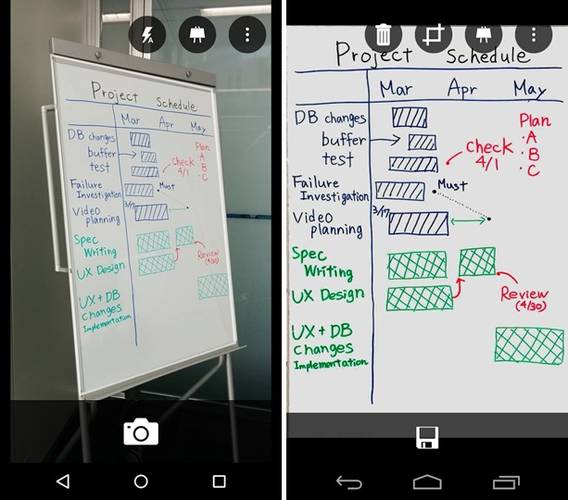 A
Project Schedule
Mar Apr May
DB changes
buffer
test
Failure
Investigation
Video
planning
Spec
Writing
UX Design
UX + DB
Changes
Implementation
Plan
A
B
C
check
4/1
Must
3/17
Review
(4/30)
Project Schedule
Mar Apr May
DB changes
buffer
test
Failure
Investigation
Video
planning
Spec
Writing
UX Design
UX + DB
Changes
Implementation
Plan
・A
・B
・C
check
4/1
Must
3/17
Review
(4/30)